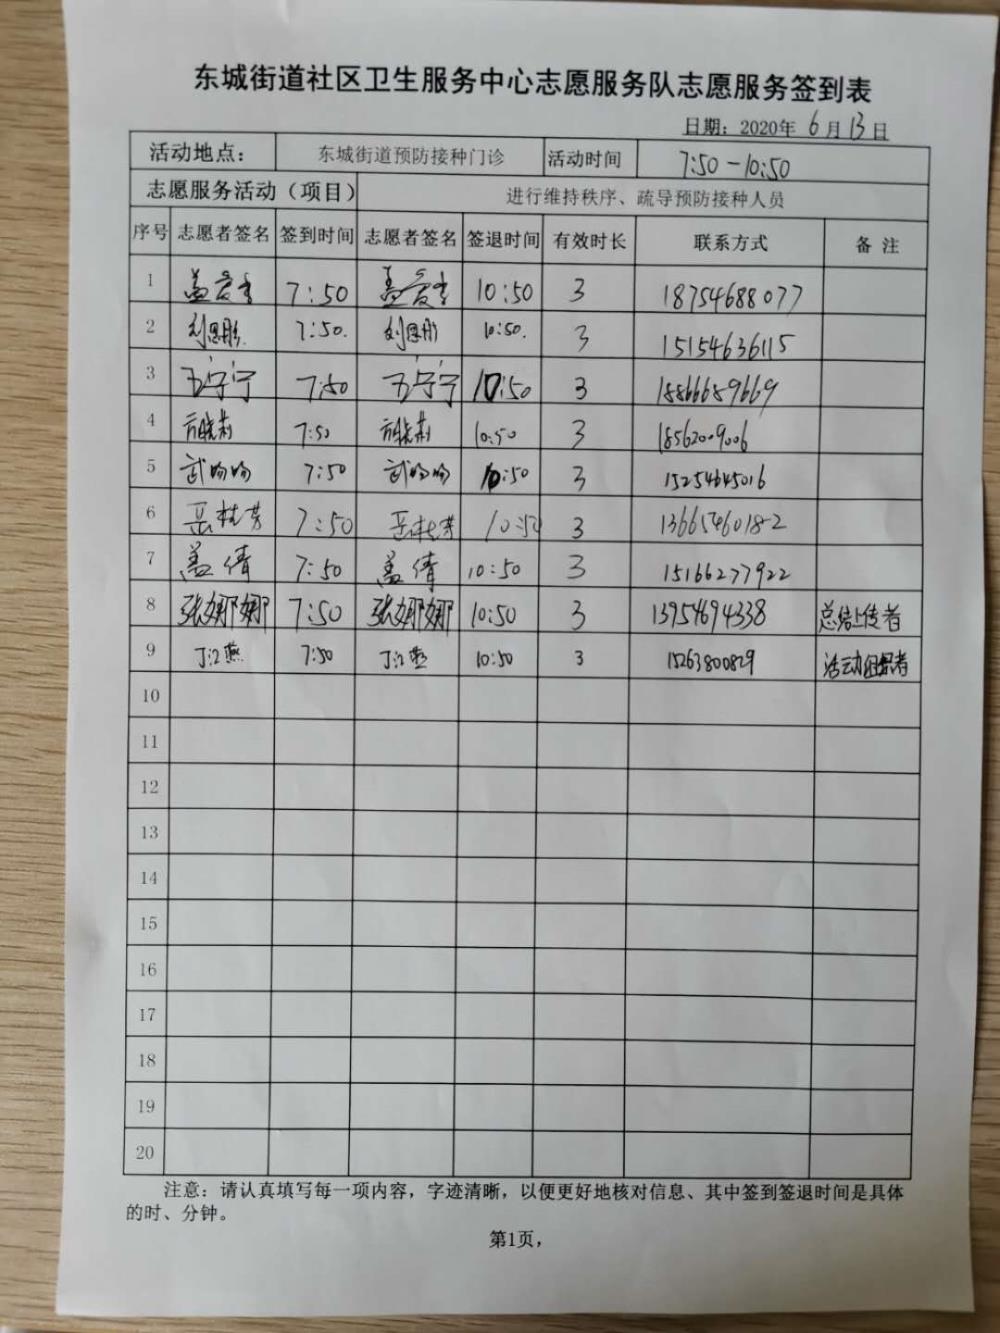 东城街道社区卫生服务中心志愿服务队志愿服务签到表
日期：2020年 6月 13日
活动地点： 东城街道预防接种门诊 活动时间 7:50-10:50
志愿服务活动（项目） 进行维持秩序、疏导预防接种人员
序号 志愿者签名 签到时间 志愿者签名 签退时间 有效时长 联系方式 备 注
1 7:50 10:50 3 18754688077
2 刘恩彤 7:50. 刘恩彤 10:50. 3 15154636115
3 王宁宁 7:50 王宁宁 10:50 3 18866689669
4 7:50 10:50 3 18562009006
5 武明明 7:50 武明明 10:50 3 15254645016
6 岳桂芳 7:50 岳桂芳 10:50 3 13665460182
7 盖倩 7:50 盖倩 10:50 3 15166277922
8 张娜娜 7:50 张娜娜 10:50 3 13954694338 总结上传者
9 丁江燕 7:50 丁江燕 10:50 3 15263800829 活动组织者
10
11
12
13
14
15
16
17
18
19
20
注意：请认真填写每一项内容，字迹清晰，以便更好地核对信息、其中签到签退时间是具体
的时、分钟。
第1页，